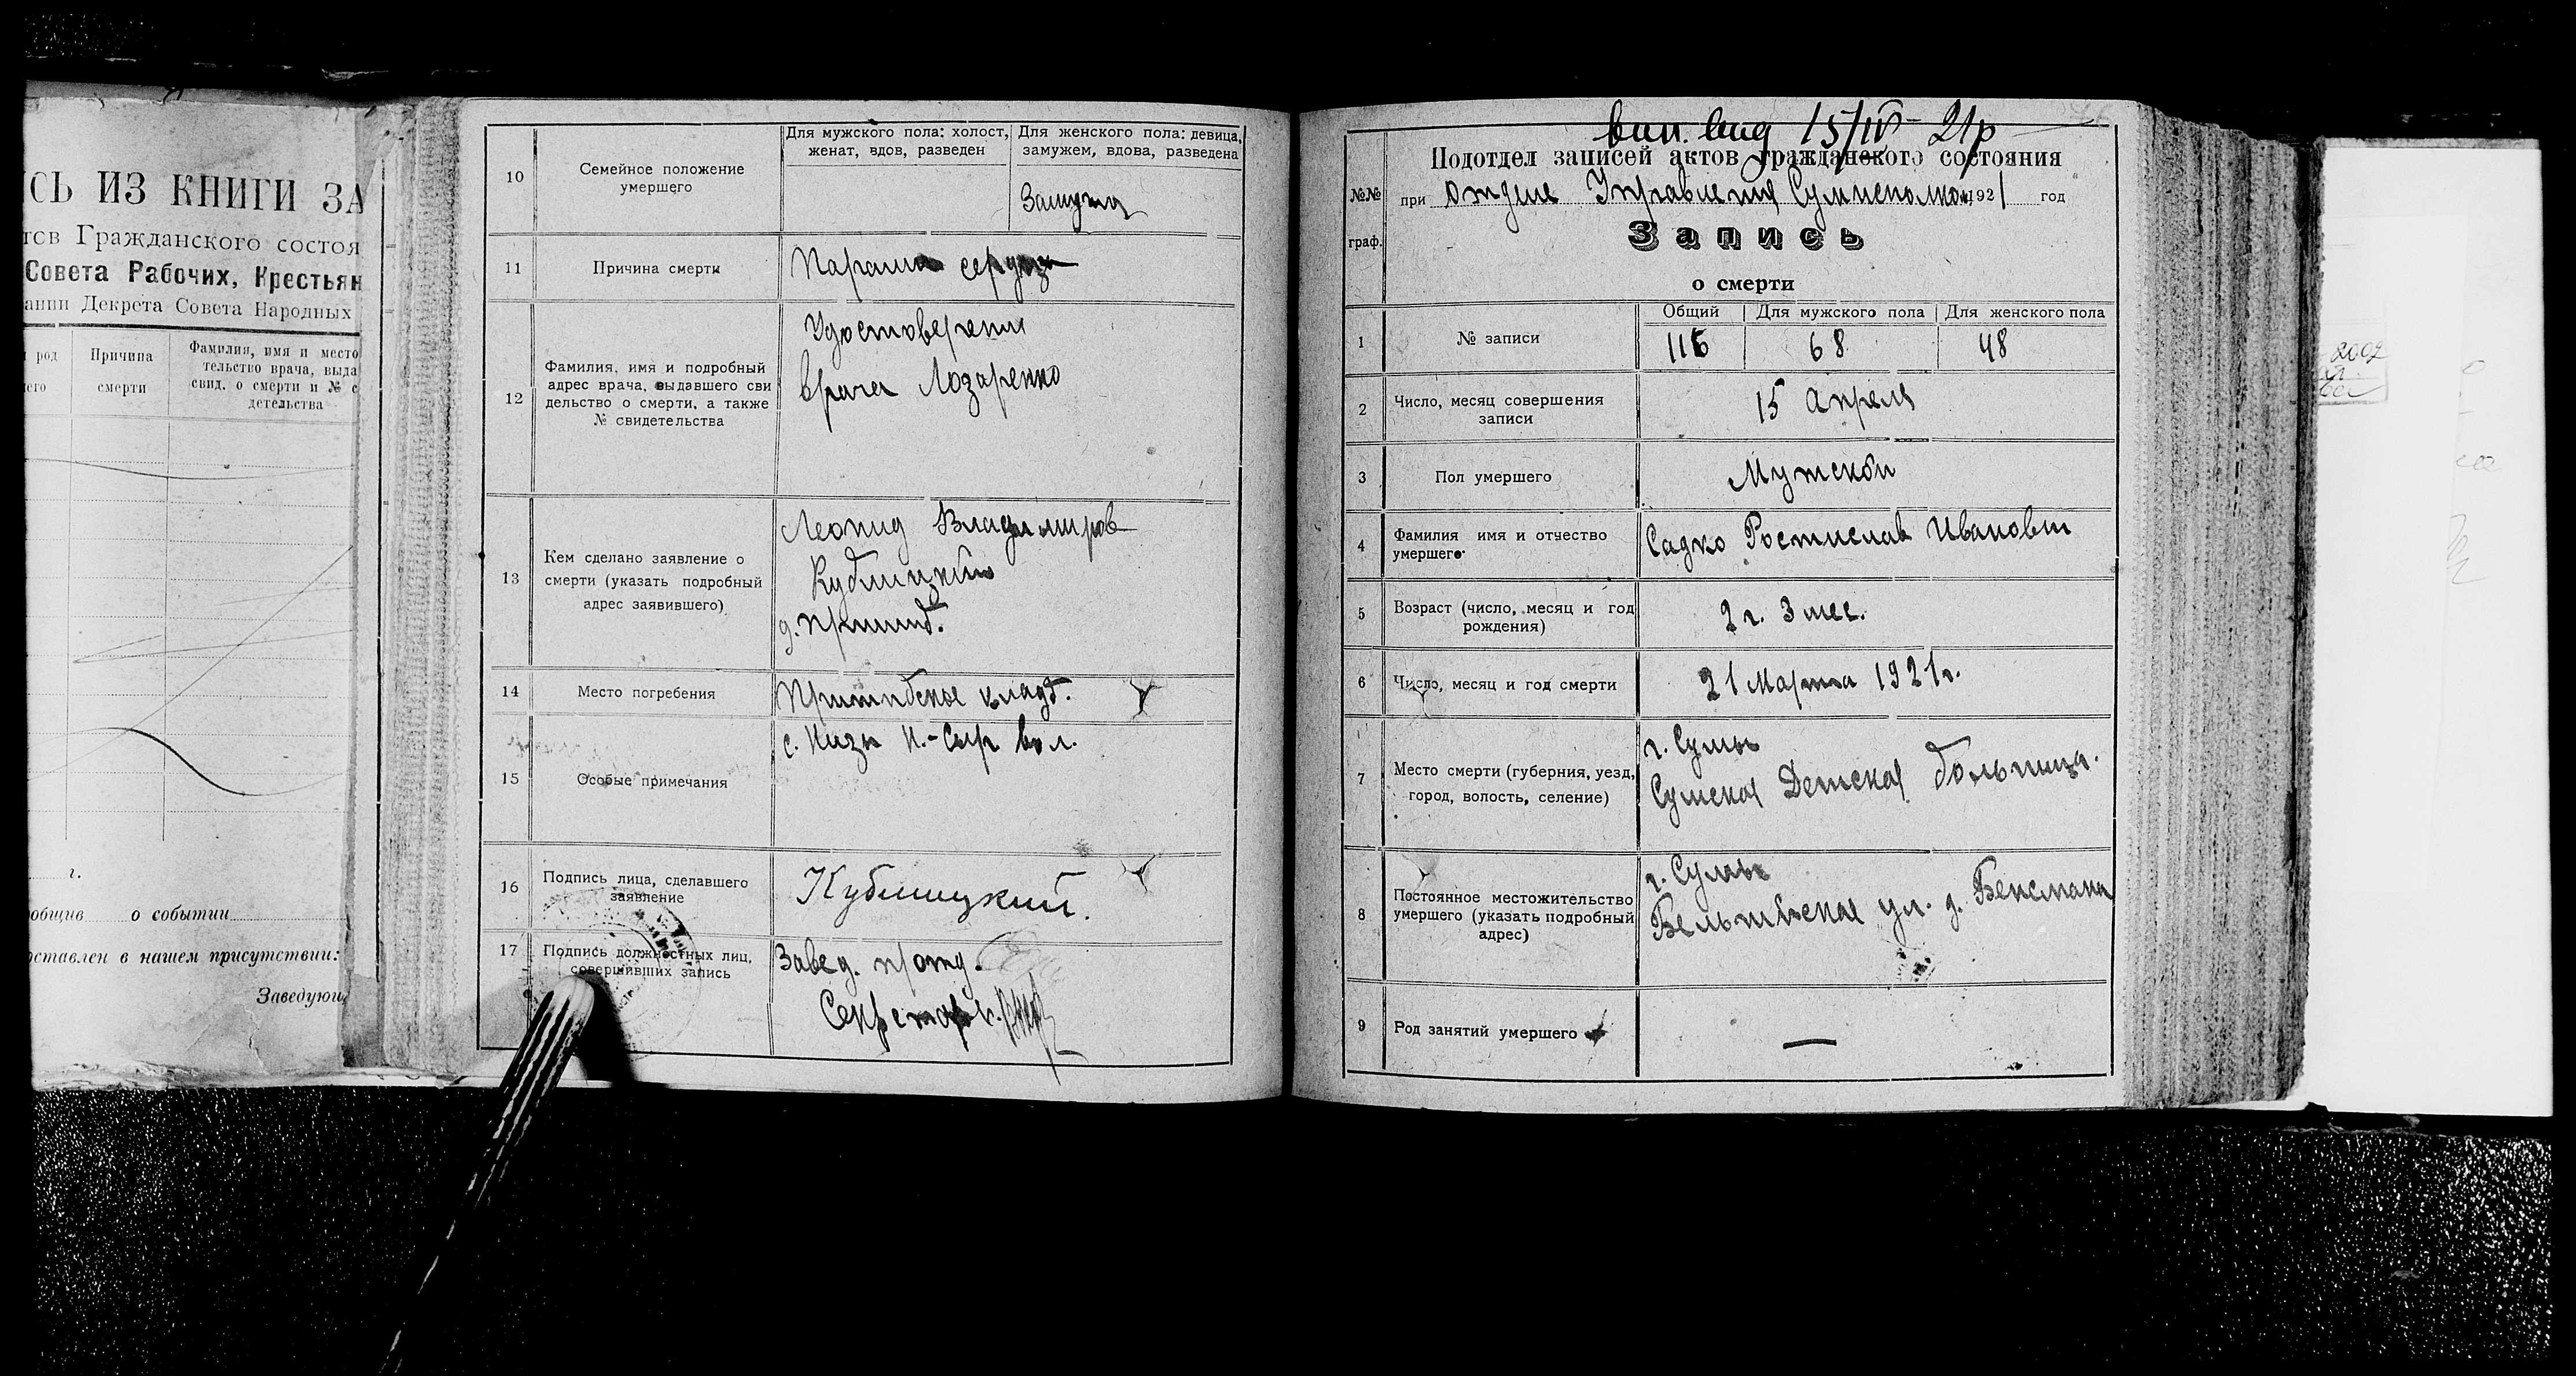 СЬ ИЗ КНИГИ ЗА
тов Гражданского состоя
Совета Рабочих, Крестьян
ании Декрета Совета Народных
род
его
Причина
смерти
Фамилия, имя и место
тельство врача, выда
свид. о смерти и № с
детельства
г.
общив о событии
оставлен в нашем присутствии:
Заведующ
10
Семейное положение
умершего
Для мужского пола: холост,
женат, вдов, разведен
Для женского пола: девица,
замужем, вдова, разведена
Замужня
11
Причина смерти
Паралич сердца
12
Фамилия, имя и подробный
адрес врача, выдавшего сви
дельство о смерти, а также
№ свидетельства
Удостоверения
врача Лозаренко
13
Кем сделано заявление о
смерти (указать подробный
адрес заявившего)
Леонид Владимиров
Кублицкий
14
Место погребения
кладб.
15
Особые примечания
с. Низы Н.-Сыр вол.
16
Подпись лица, сделавшего
заявление
Кублицкий.
17
Подпись должностных лиц,
совершивших запись
Завед. п/отд.
Секретарь
вип. вид 15/IV 21р
№№
граф.
Подотдел записей актов гражданского состояния
при Отделе Управления Сумисполком 1921 год
Запись
о смерти
1
№ записи
Общий
Для мужского пола
Для женского пола
116
68
48
2
Число, месяц совершения
записи
15 Апреля
3
Пол умершего
Мужской
4
Фамилия имя и отчество
умершего
Садко Ростислав Иванович
5
Возраст (число, месяц и год
рождения)
2 г. 3 мес.
6
Число, месяц и год смерти
21 Марта 1921 г.
7
Место смерти (губерния, уезд,
город, волость, селение)
г. Сумы
Сумская Детская больница.
8
Постоянное местожительство
умершего (указать подробный
адрес)
г. Сумы
ул. д. Бенсмана
9
Род занятий умершего
—
2002